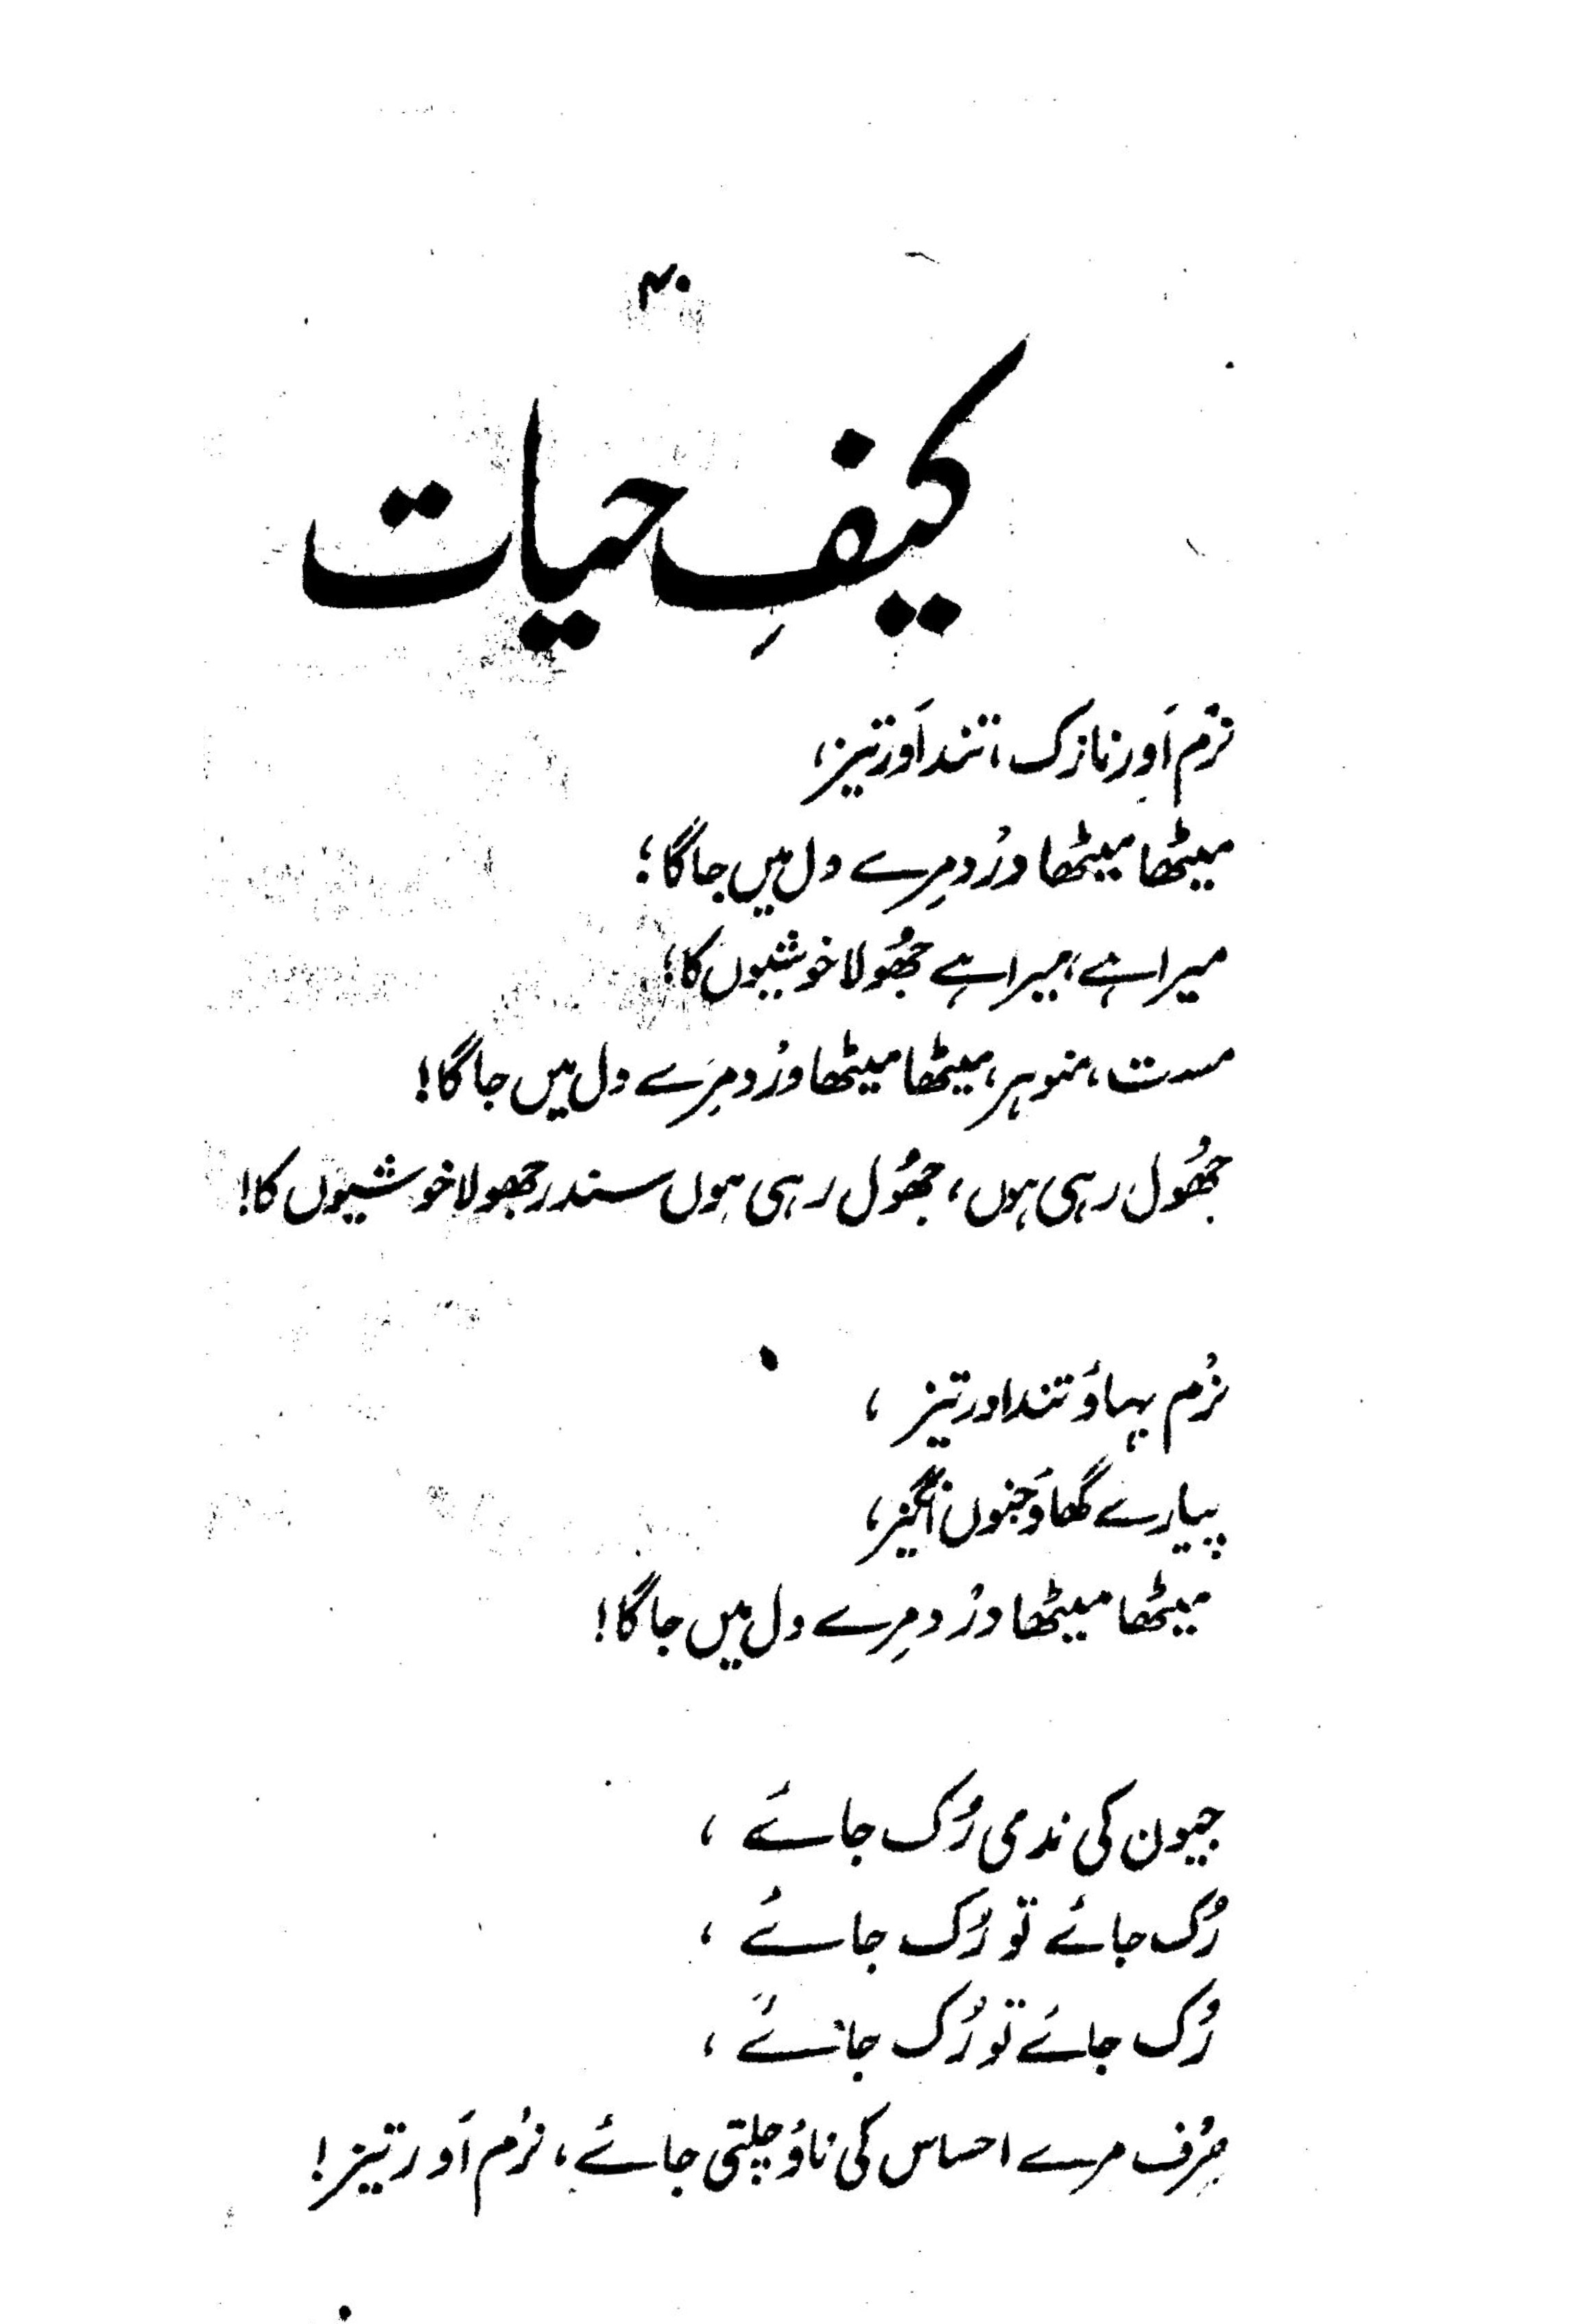 ۴۰
کیفِ حیات
نرْم اَور نازک، تند اَور تیز،
میٹھا میٹھا درْد مِرے دل میں جاگا؛
میرا ہے، میرا ہے جھُولا خوشیوں کا؛
مست، منوہر، میٹھا میٹھا درْد مِرے دل میں جاگا!
جھُول رہی ہوں، جھُول رہی ہوں سندر جھولا خوشیوں کا!
نرْم بہاوٗ تند اور تیز،
پیارے گھاوٗ جنوں انگیز،
میٹھا میٹھا درْد مِرے دل میں جاگا!
جیون کی ندی رُک جائے،
رُک جائے تو رُک جائے،
رُک جائے تو رُک جائے،
صِرْف مرے احساس کی ناؤ چلتی جائے، نرْم اَور تیز!